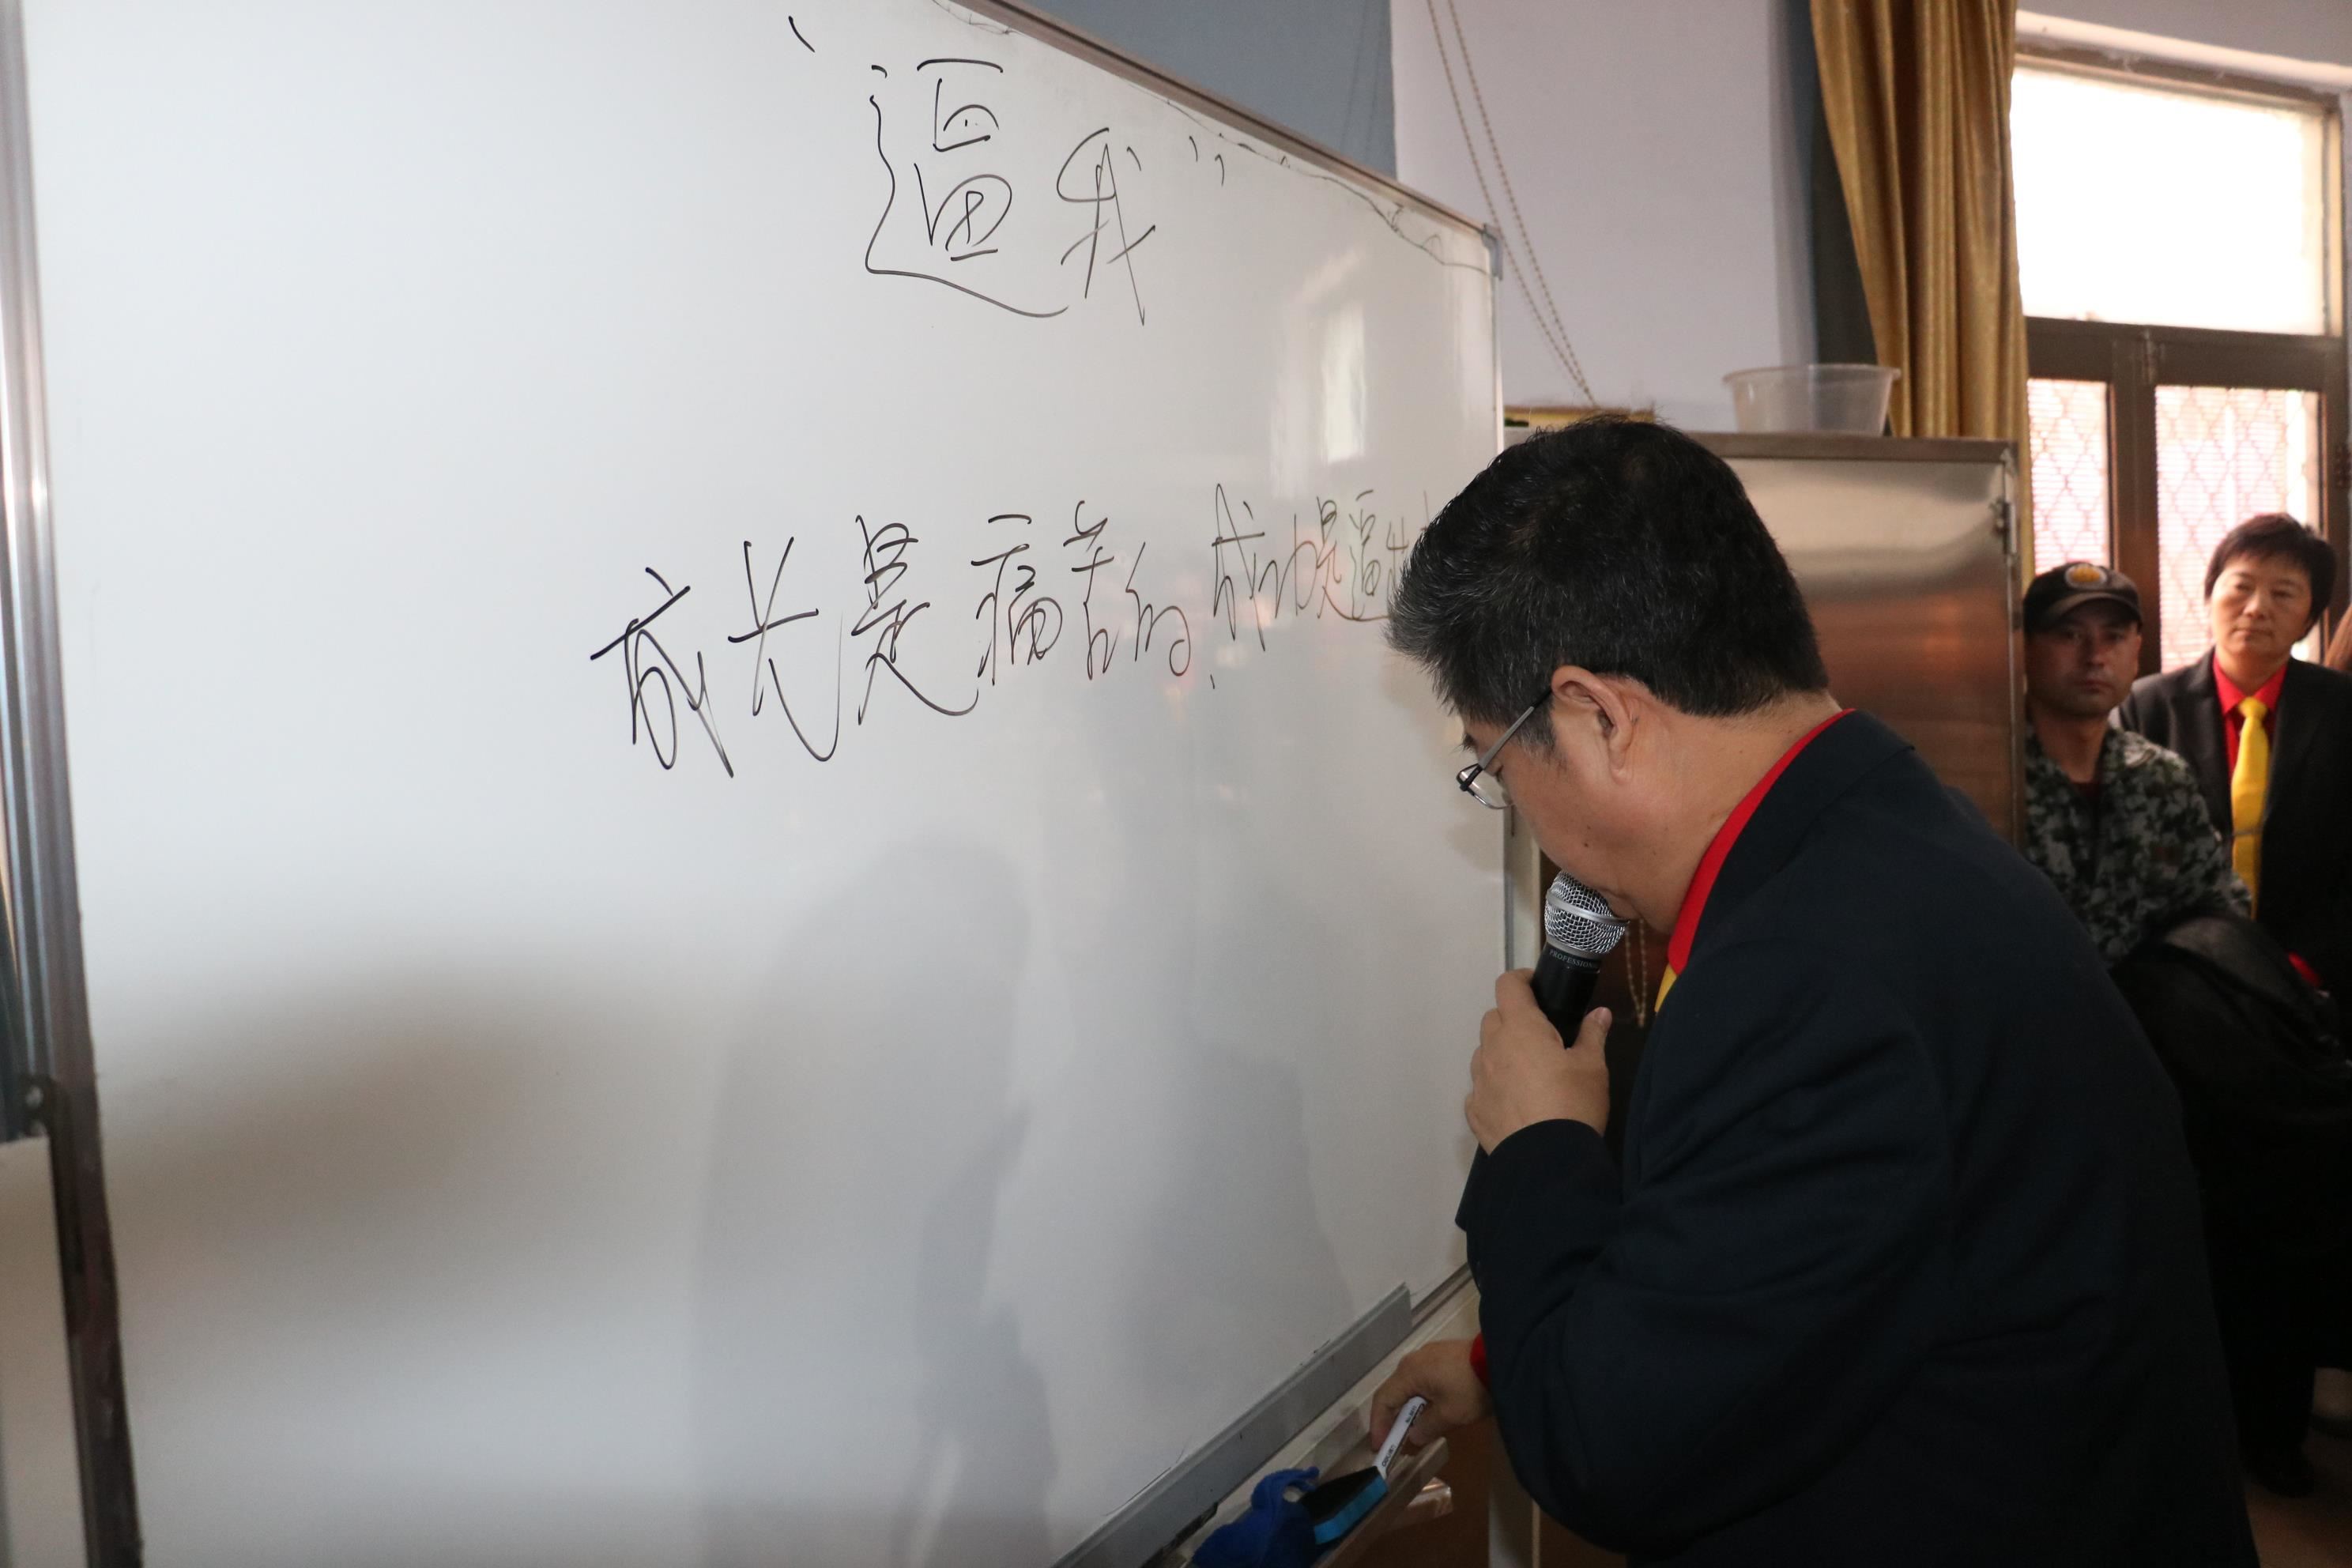 “逼我”
成长是痛苦的,成功是逼出
PROFESSIONAL